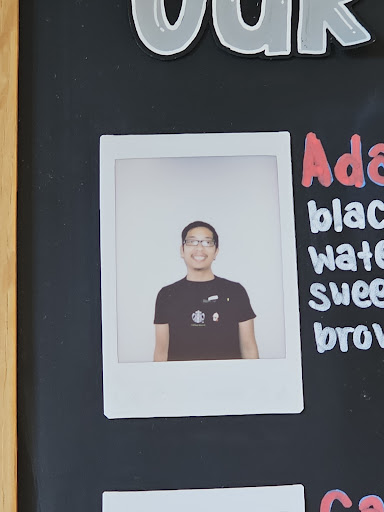 our
Ada
blac
wate
swee
brow
Ca